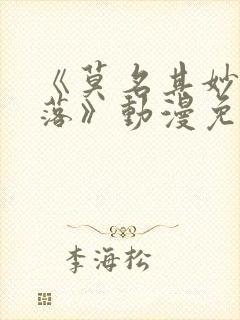 《莫名其妙
落》動漫免
李海松